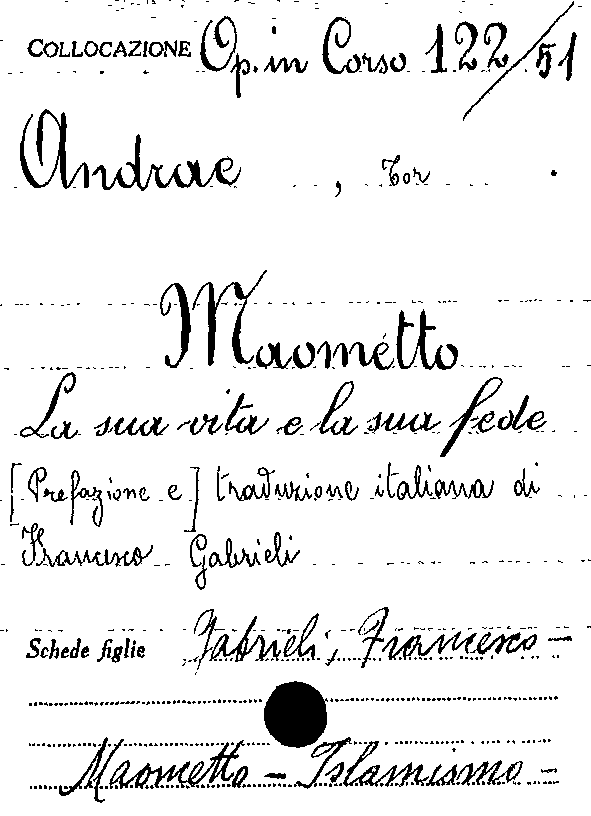 COLLOCAZIONE Op. in Corso 122/51
Andrae , Tor .
Maometto
La sua vita e la sua fede
[Prefazione e] traduzione italiana di
Francesco Gabrieli
Schede figlie Gabrieli, Francesco -
Maometto - Islamismo -